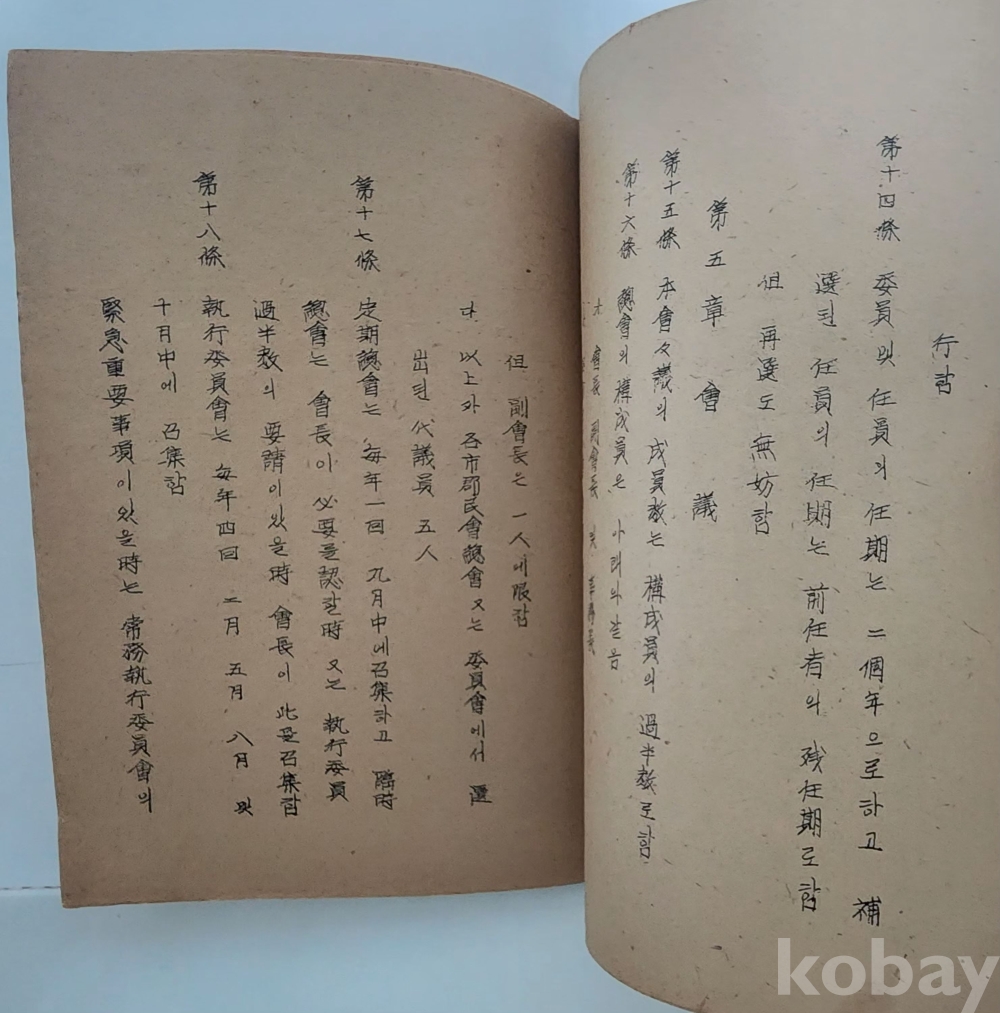 行함
第十四條 委員 및 任員의 任期는 二個年으로하고 補
選된 任員의 任期는 前任者의 残任期로함
但 再選도 無妨함
第五章 會議
第十五條 本會々議의 成員数는 構成員의 過半数로함
第十六條 總會의 構成員은 아래의 같음
會長 副會長 및
但 副會長은 一人에限함
다. 以上과 各市郡民會總會 又는 委員會에서 選
出된 代議員 五人
第十七條 定期總會는 每年一回 九月中에召集하고 臨時
總會는 會長이 必要를認할時 又는 執行委員
過半数의 要請이있을時 會長이 此를召集함
第十八條 執行委員會는 每年四回 二月 五月 八月 및
十月中에 召集함
緊急重要事項이있을時는 常務執行委員會의
kobay